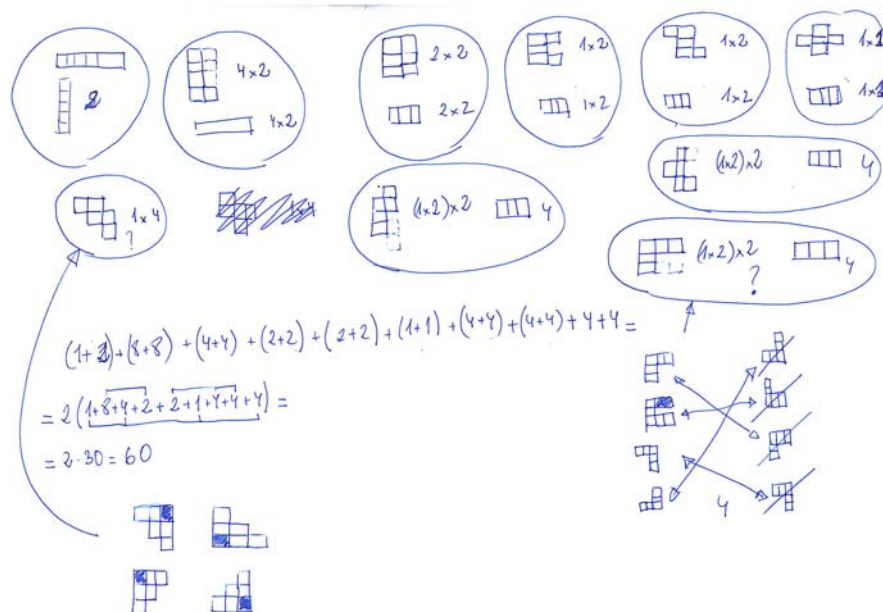 2
4×2
4×2
2×2
2×2
1×2
1×2
1×2
1×2
1×1
1×1
(1×2)×2 4
1×4
?
(1×2)×2 4
(1×2)×2 4
?
(1+1)+(8+8)+(4+4)+(2+2)+(2+2)+(1+1)+(4+4)+(4+4)+4+4=
=2(1+8+4+2+2+1+4+4+4)=
=2·30=60
4